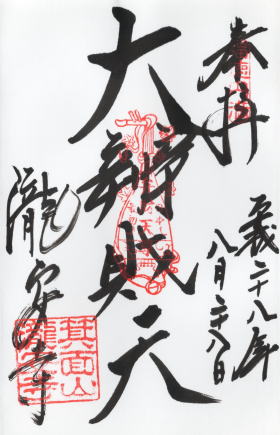 奉拝
平成二十八年
八月二十八日
大辨財天
瀧安寺
箕面山
瀧安寺